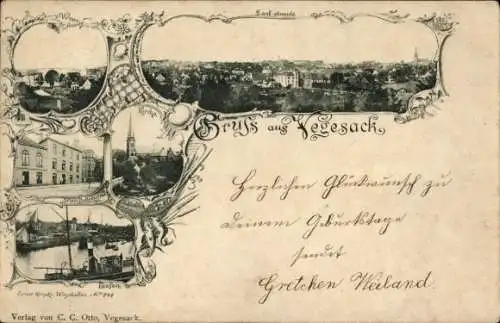 Gruss aus Vegesack.
Herzlichen Glückwunsch zu
Deinem Geburtstage
sendet
Gretchen Weiland.
Hafen
Verlag von C. C. Otto, Vegesack.